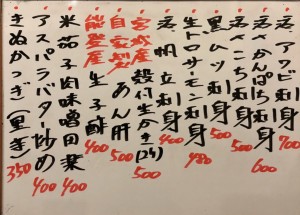 活、アワビ刺身 700
活〆かんぱち刺身 600
活〆こち刺身 500
黒ムツ刺身 500
生トロサーモン刺身 480
活帆立刺身 400
宮城産殻付生かき(2ケ) 500
自家製あん肝 500
能登産生子酢 400
米茄子肉味噌田楽 400
アスパラバター炒め 400
きぬかつぎ(里き 350